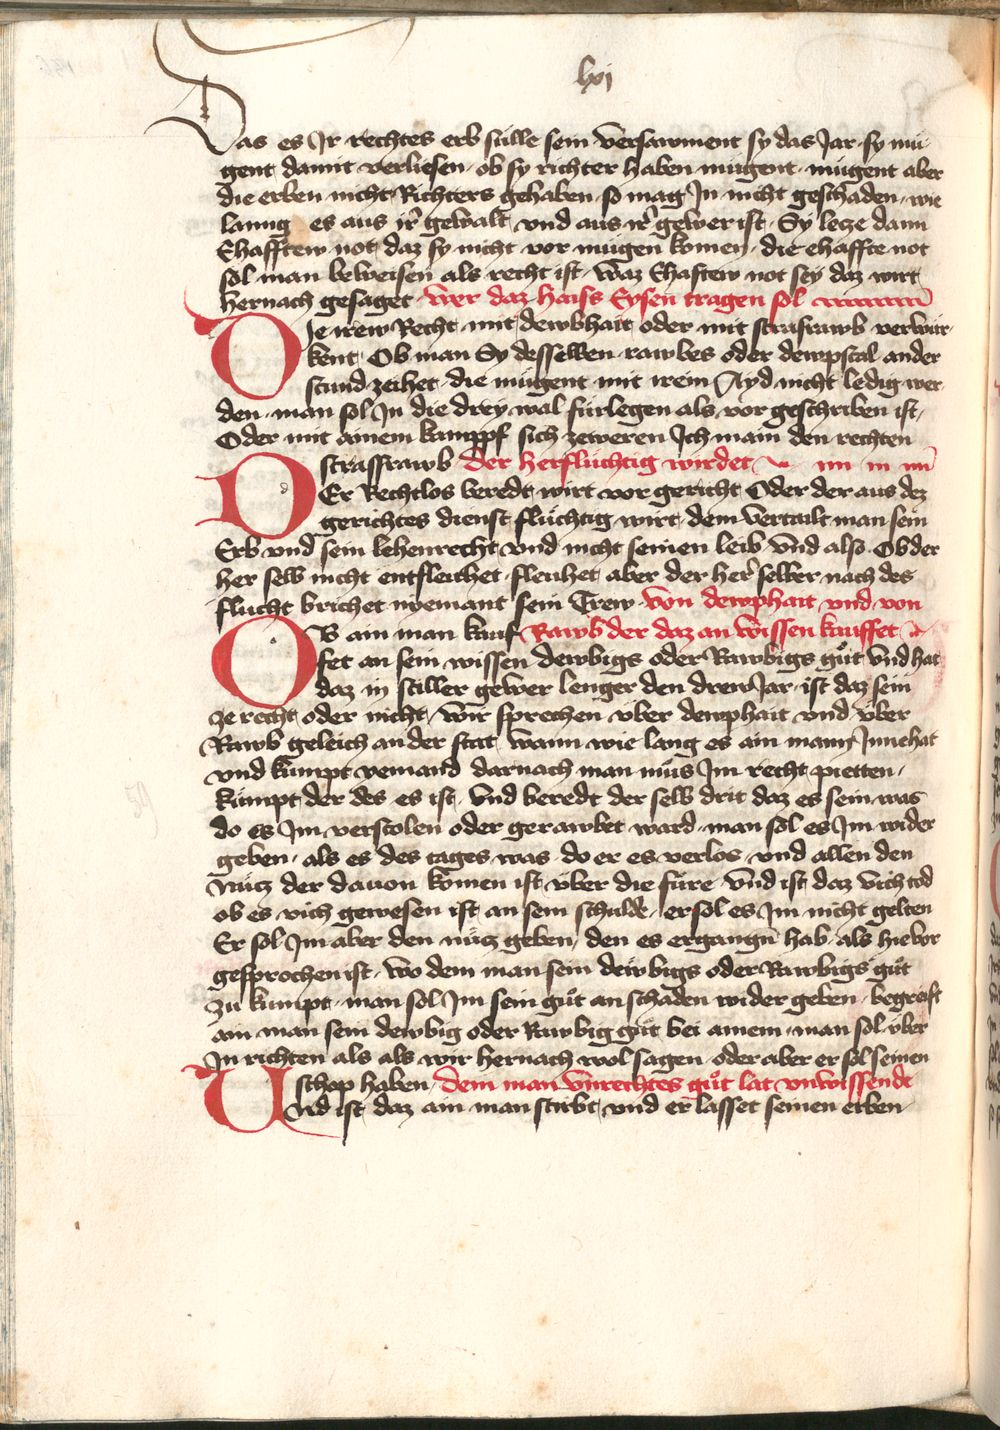 lxj
Das es Jr rechtes erb sülle sein versawment sy das Jar sy mü-
gent damit verliesen ob sy richter haben mügent mügent aber
die erben nicht Richters gehaben so mag Jn nicht geschaden wie
lanng es aus jr gewalt vnd aus jr gewer ist Sy letze dann
Ehafftew not daz sy nicht vor mügen komen die ehaffte not
sol man beweisen als recht ist waz Ehaftew not sey daz wirt
hernach gesaget wer daz haiss Eysen tragen sol
DJe irew Recht mit dewbhait oder mit strasrawb verwür-
kent Ob man Sy desselben rawbes oder dewpstal ander
stund zeihet die mügent mit irem Ayd nicht ledig wer
den man sol Jn die drey wal fürlegen als vor geschriben ist
Oder mit ainem kamppf sich zeweren Jch main den rechten
strassrawb der herflüchtig wirdet
DEr Rechtlos beredt wirt vor gericht Oder der aus dez
gerichtes dienst flüchtig wirt dem vertailt man sein
Erb vnd sein lehenrecht vnd nicht seinen leib vnd also Ob der
her selb nicht entfleuhet fleuhet aber der her selber nach des
flucht brichet nyemant sein Trew von dewphait vnd von
OB ain man kauf Rawb der daz an wissen kauffet
fet an sein wissen dewbigs oder Rawbigs gůt vnd hat
daz in stiller gewer lenger den drew Jar ist daz sein
ze recht oder nicht wir sprechen über dewphait vnd über
Rawb geleich an der stat wann wie lang es ain mann Jnnehat
vnd kumpt yemand darnach man müs Jm recht pietten
kumpt der des es ist vnd beredt der selb drit daz es sein was
do es Jm verstolen oder gerawbet ward man sol es Jm wider
geben als es des tages was do er es verlos vnd allen den
nutz der dauon komen ist über die füre vnd ist daz vich tod
ob es vich gewesen ist an sein schulde er sol es Jm nicht gelten
Er sol Jm aber den nutz geben den es ergangn hab als hieuor
gesprochen ist wo dem man sein dewbigs oder Rawbigs gůt
zu kumpt man sol Jm sein gůt an schaden wider geben begreift
ain man sein dewbig oder Rawbig gůt bei ainem man sol über
Jn richten als als wir hernach wol sagen oder aber er sol seinen
schop haben dem man vnrechtes gůt lat vnwissende
Vnd ist daz ain man stirbt vnd er lasset seinen erben